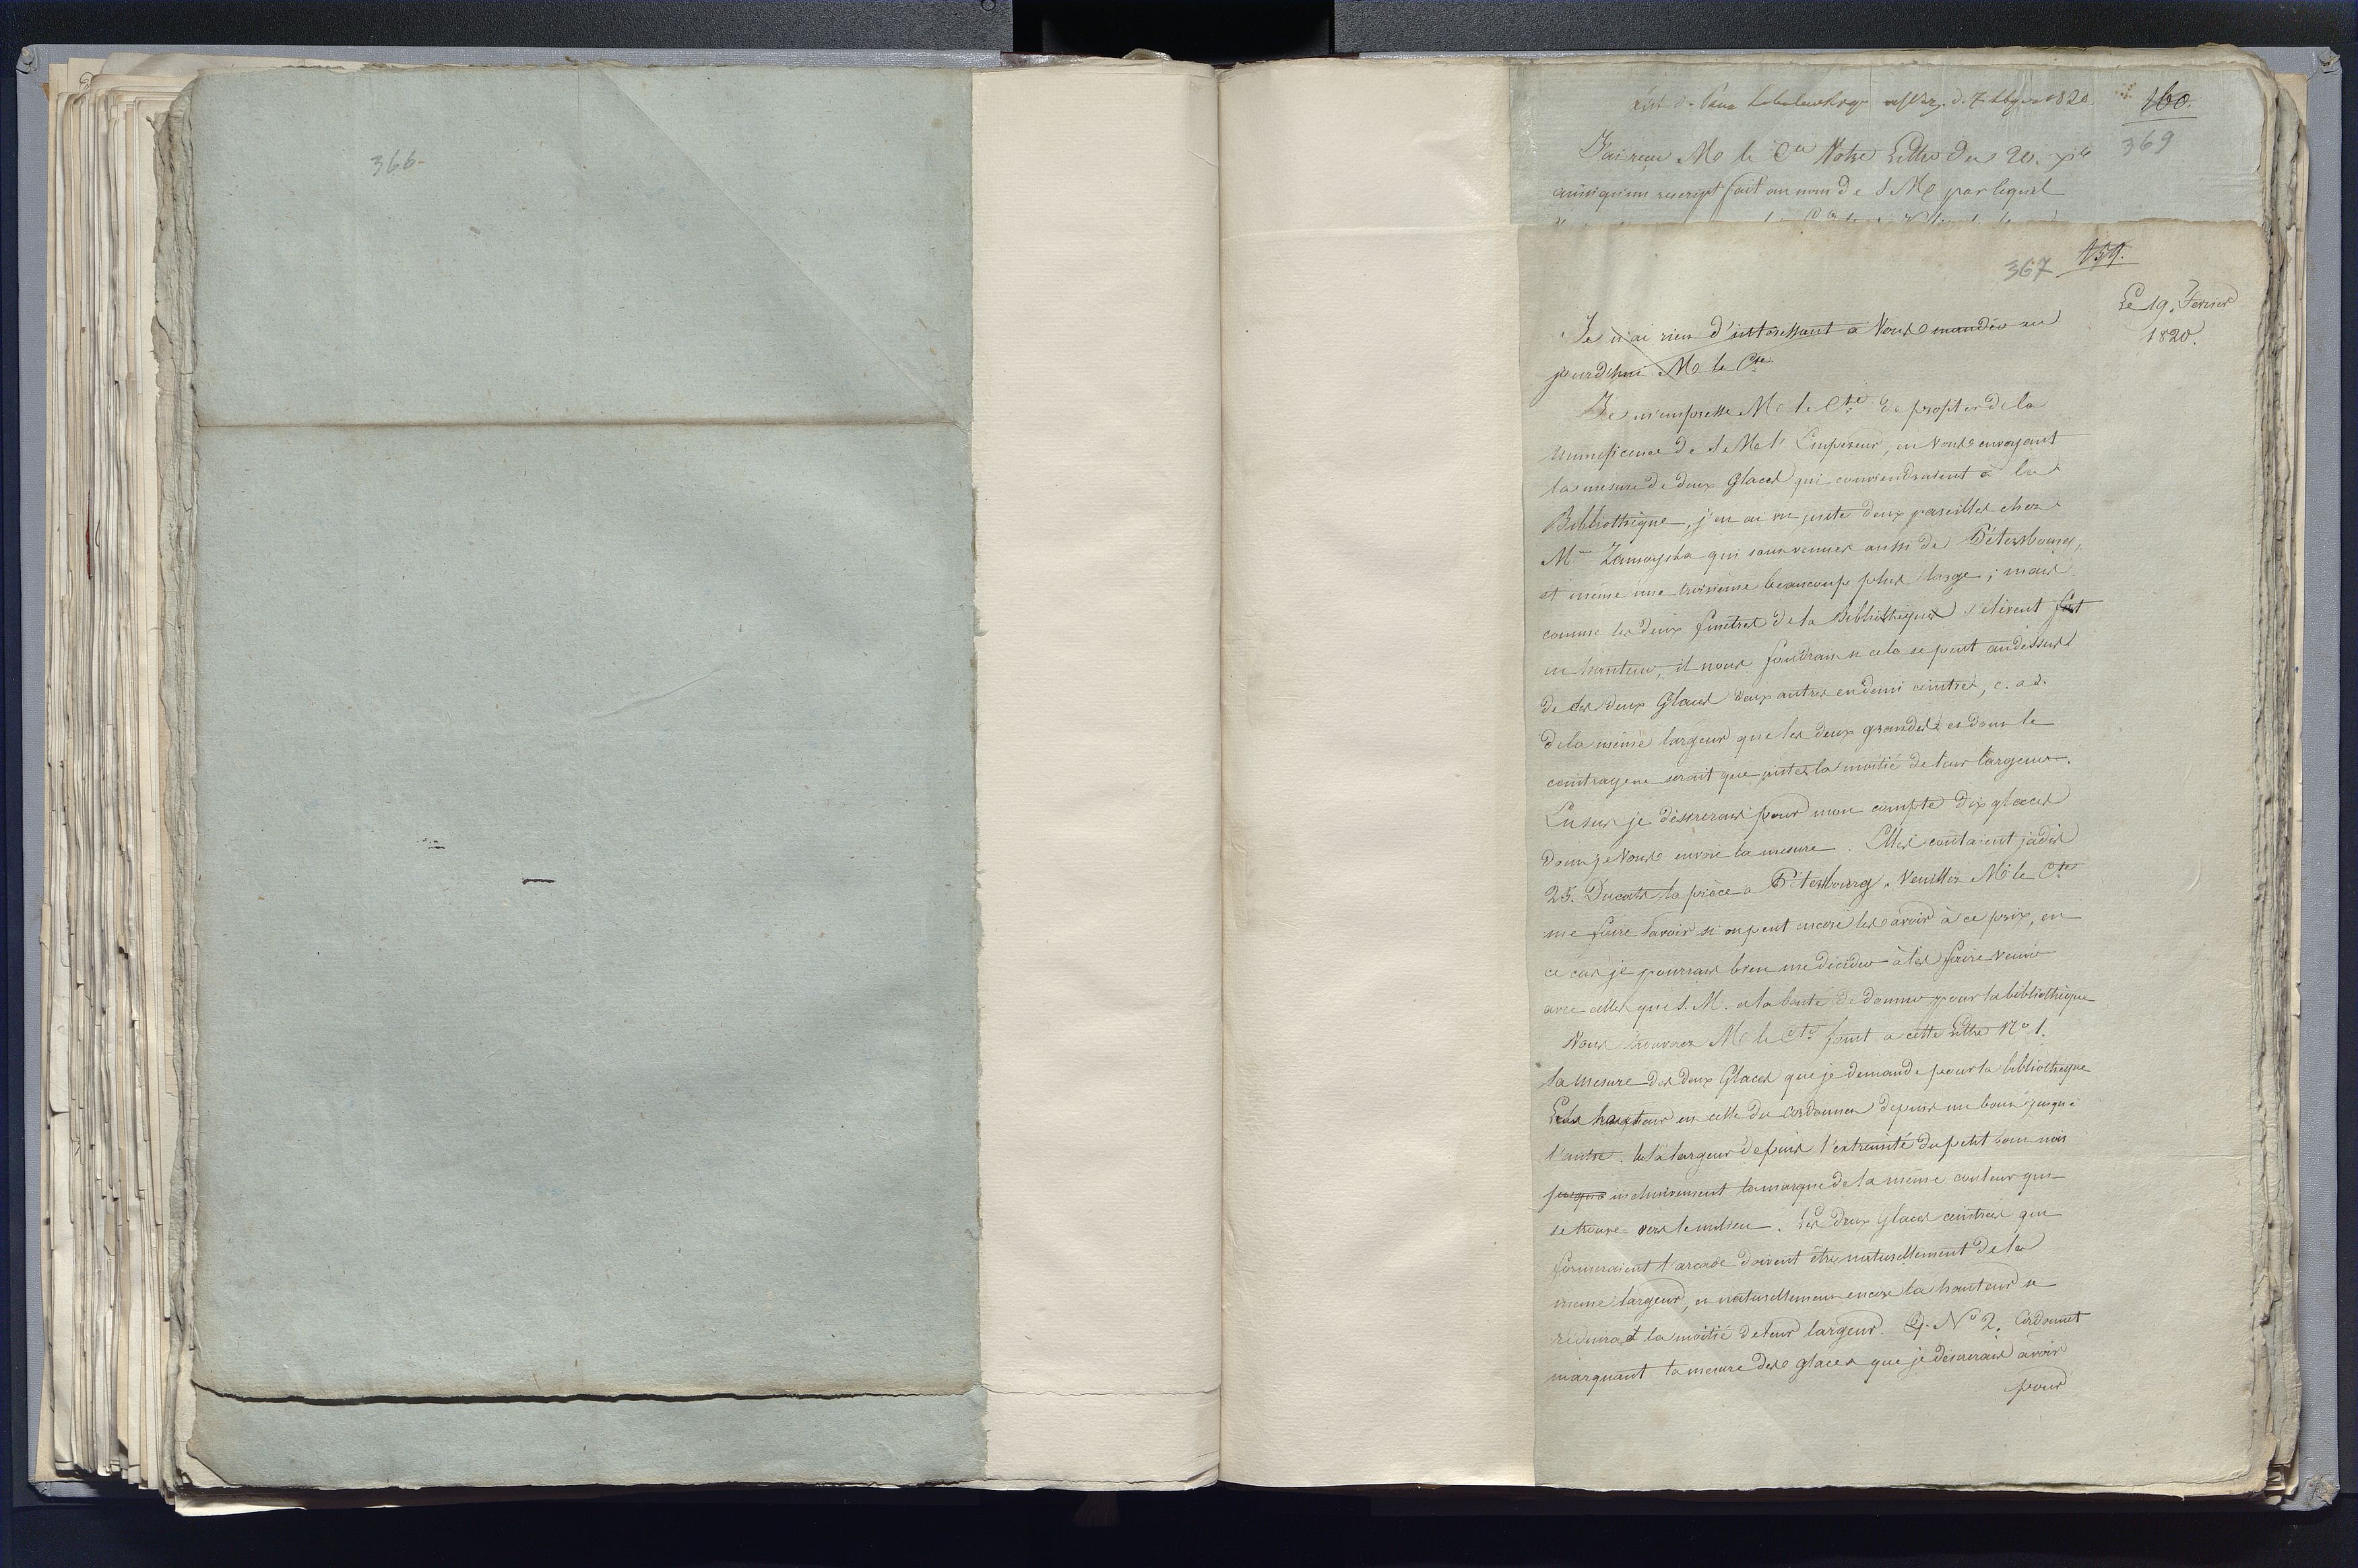 366-
160.
369
J'ai reçu Mr le Cte Votre Lettre du 20. xb
ainsi qu'un rescript fait au nom de S. M. par lequel
367
159.
Le 19. Fevrier
1820.
Je n'ai rien d'interessant à Vous mander au
jourd'hui Mr le Cte
Je m'empresse Mr le Cte de profiter de la
munificence de S. M. l'Empereur, en Vous envoyant
la mesure de deux Glaces qui conviendraient à la
Bibliothèque, j'en ai vu juste deux pareilles chez
Mme Zamoyska qui sont venues aussi de Pétersbourg,
et même une troisième beaucoup plus large; mais
comme les deux fenetres de la Bibliothèque s'élèvent fort
en hauteur, il nous faudrait si cela se peut audessus
de ces deux Glaces deux autres en demi ceintres, c. a d.
de la même largeur que les deux grandes et dont le
ceintrage ne serait que juste la moitié de leur largeur.
Ensus je désirerais pour mon compte dix glaces
dont je Vous envoie la mesure. Elles coutaient jadis
25. Ducats la pièce a Pétersbourg. Veuillez Mr le Cte
me faire savoir si on peut encore les avoir à ce prix, en
ce cas je pourrais bien me décider à les faire venir
avec celles que S. M. a la bonté de donner pour la bibliothèque
Vous trouverez Mr le Cte joint a cette Lettre No 1.
la mesure des deux Glaces que je demande pour la bibliothèque
La hauteur est celle du Cordonnet depuis un bout jusqu'à
l'autre. la largeur depuis l'extremité du petit bout noir
jusqu'a inclusivement la marque de la même couleur qui
se trouve vers le milieu. Les deux glaces ceintrées qui
formeraient l'arcade doivent être naturellement de la
même largeur, et naturellement encore la hauteur se
réduira à la moitié de leur largeur. No 2. Cordonnet
marquant la mesure des glaces que je désirerais avoir
pour